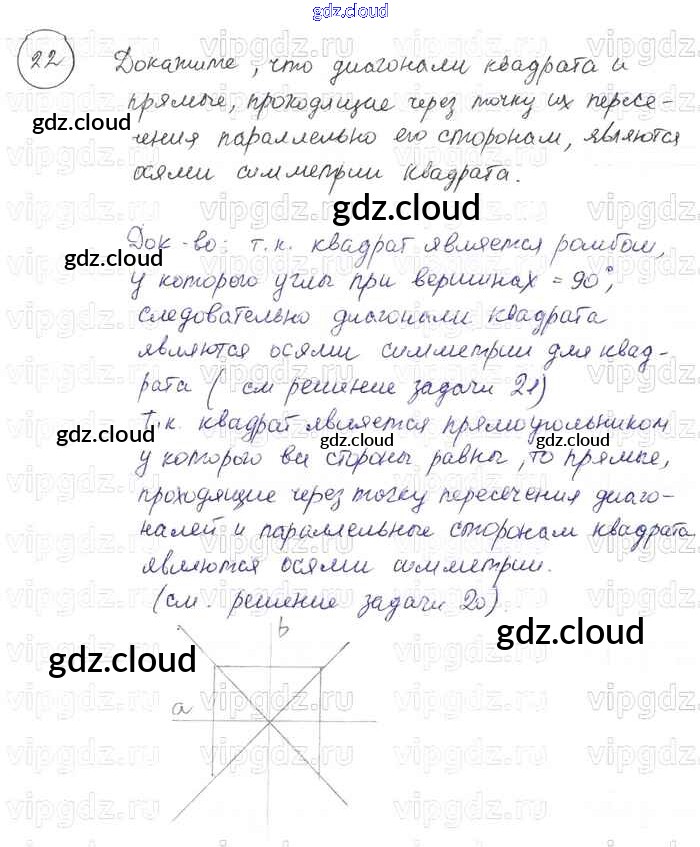 gdz.cloud
22 Докажите, что диагонали квадрата и
прямые, проходящие через точку их пересе-
чения параллельно его сторонам, являются
осями симметрии квадрата.
gdz.cloud
gdz.cloud
Док-во: т.к. квадрат является ромбом,
gdz.cloud
у которого углы при вершинах = 90°,
следовательно диагонали квадрата
являются осями симметрии для квад-
рата ( см решение задачи 21)
Т.к. квадрат является прямоугольником
gdz.cloud gdz.cloud gdz.cloud
у которого все стороны равны, то прямые,
проходящие через точку пересечения диаго-
налей и параллельные сторонам квадрата
являются осями симметрии.
(см. решение задачи 20).
gdz.cloud
gdz.cloud
b
a
vipgdz.ru